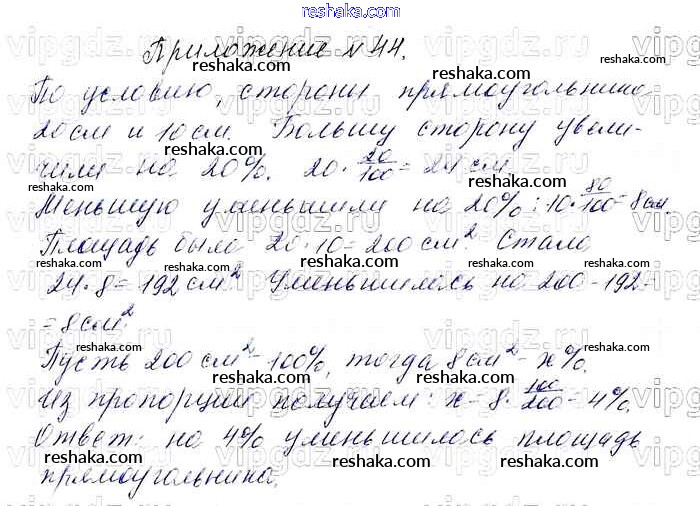 reshaka.com
Приложение № 44.
По условию, стороны прямоугольника
20 см и 10 см. Большу сторону увели-
чили на 20%. 20 · 20/100 = 24 см
Меньшую уменьшили на 20%: 10 · 80/100 = 8 см.
Площадь было 20 · 10 = 200 см² Стало
24 · 8 = 192 см² Уменьшилось на 200 - 192 =
= 8 см²
Пусть 200 см² - 100%, тогда 8 см² - x%.
Из пропорции получаем: x = 8 · 100/200 = 4%.
Ответ: на 4% уменьшилось площадь
прямоугольника.
reshaka.com
vipgdz.ru